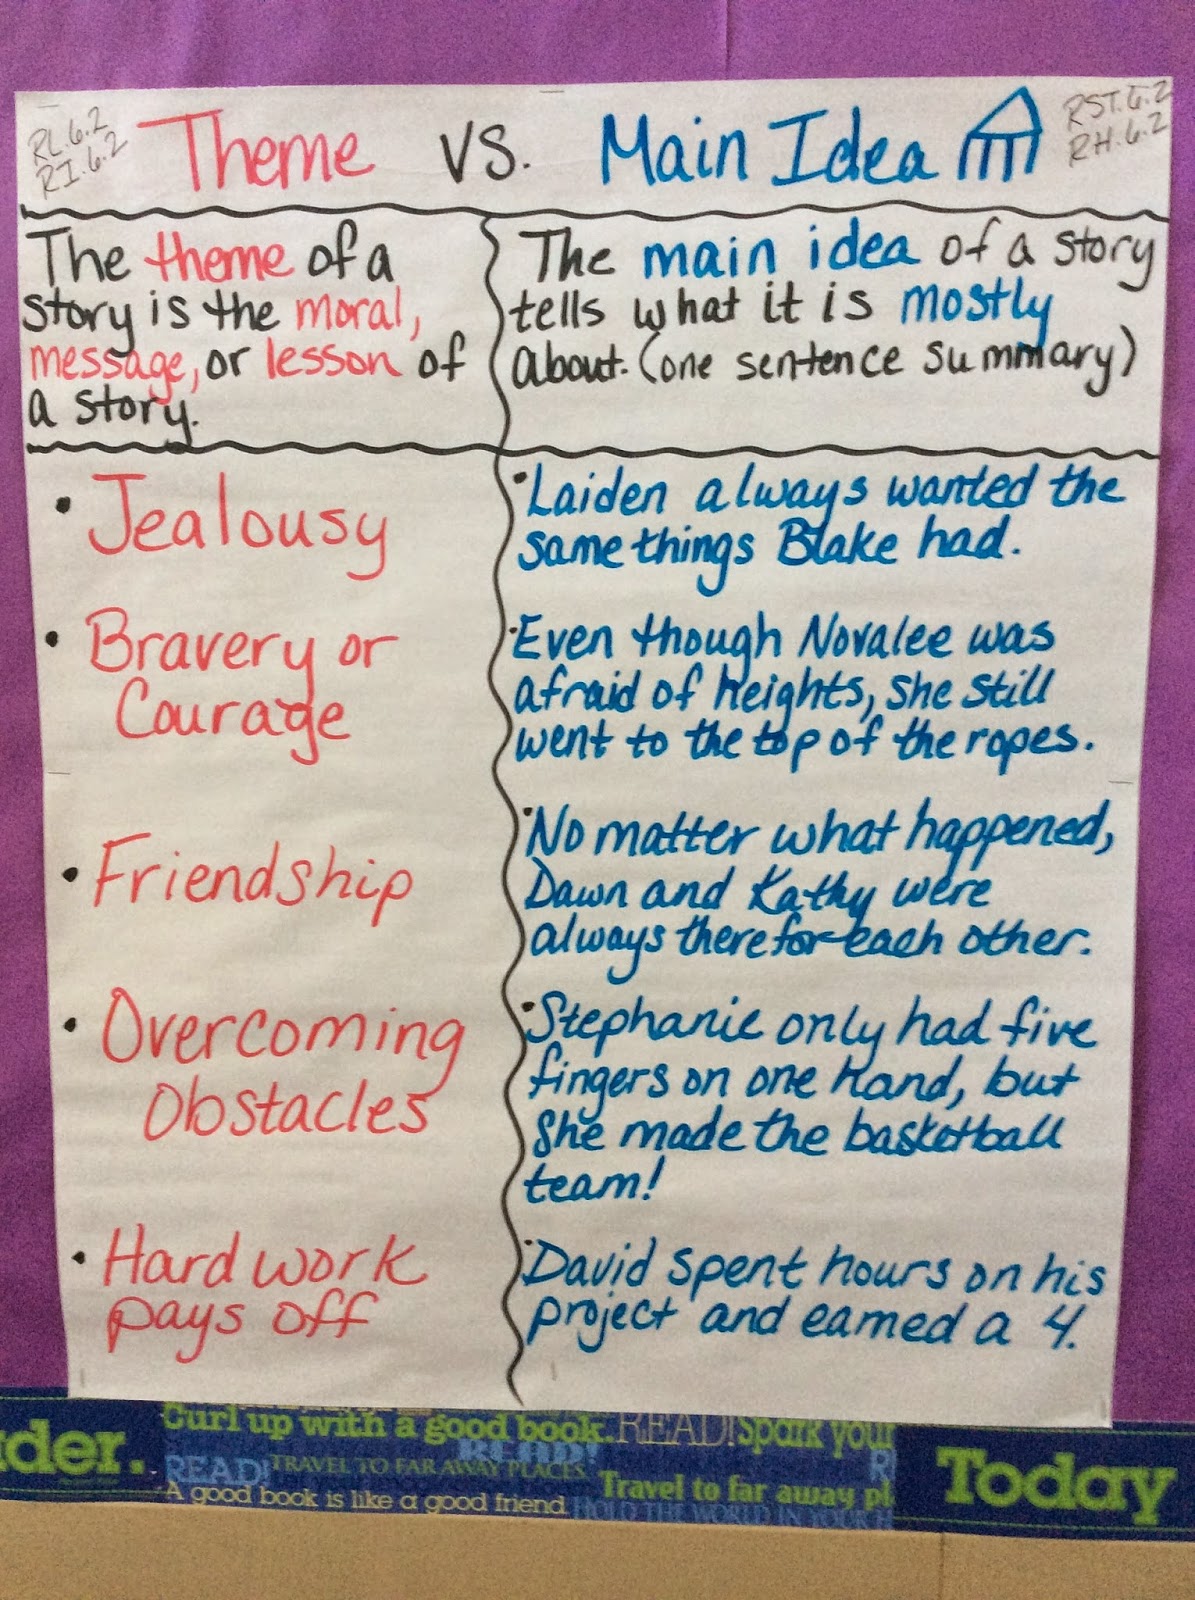 RL.6.2
RI.6.2
Theme vs. Main Idea
RST.6.2
RH.6.2
The theme of a
story is the moral,
message, or lesson of
a story.
The main idea of a story
tells what it is mostly
about. (one sentence summary)
• Jealousy
• Laiden always wanted the
same things Blake had.
• Bravery or
Courage
• Even though Novalee was
afraid of heights, she still
went to the top of the ropes.
• Friendship
• No matter what happened,
Dawn and Kathy were
always there for each other.
• Overcoming
Obstacles
• Stephanie only had five
fingers on one hand, but
she made the basketball
team!
• Hard work
pays off
• David spent hours on his
project and earned a 4.
der.
Curl up with a good book.
READ!
Spark your
READ!
READ!
TRAVEL TO FAR AWAY PLACES.
Travel to far away pl
A good book is like a good friend
HOLD THE WORLD IN YOUR H
Today